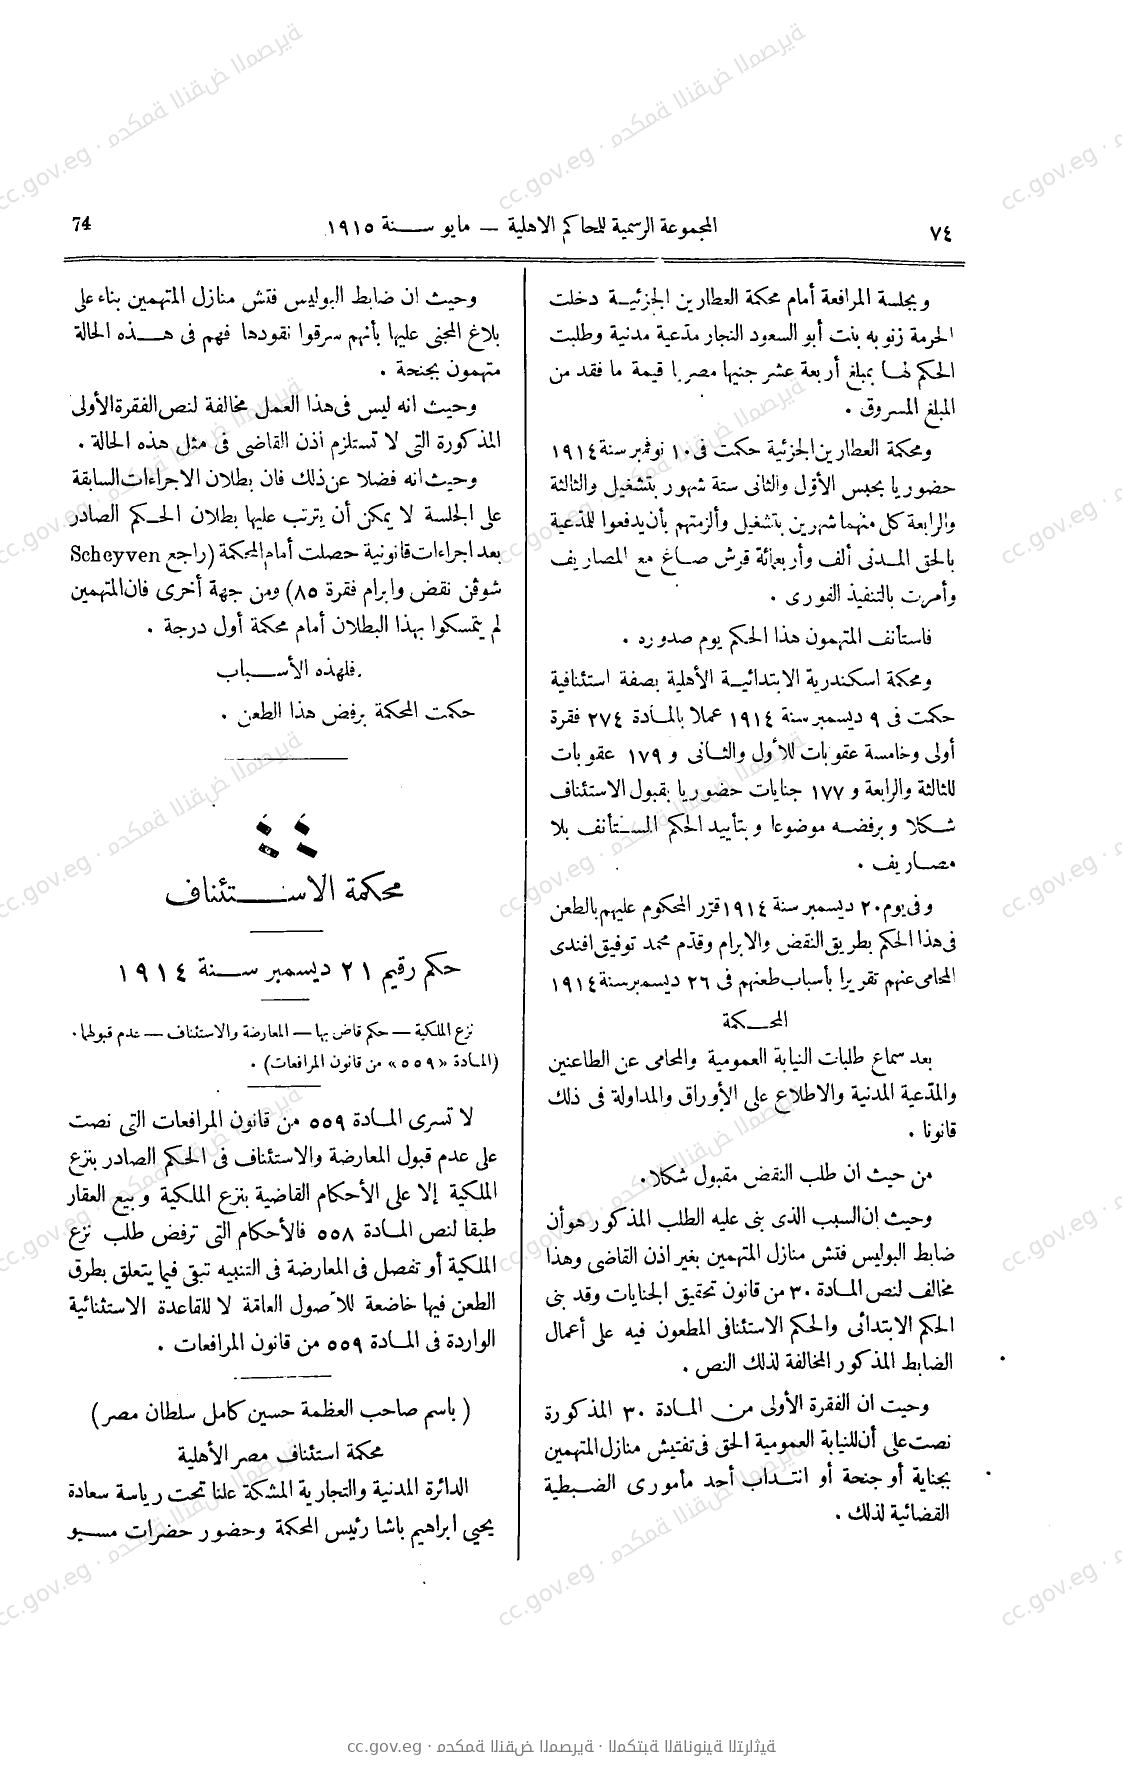 ٧٤
المجموعة الرسمية للمحاكم الاهلية — مايو سنة ١٩١٥
74
وبجلسة المرافعة أمام محكمة العطارين الجزئية دخلت
الحرمة زنوبه بنت أبو السعود النجار مدّعية مدنية وطلبت
الحكم لها بمبلغ أربعة عشر جنيها مصريا قيمة ما فقد من
المبلغ المسروق .
ومحكمة العطارين الجزئية حكمت فى ١٠ نوفمبر سنة ١٩١٤
حضوريا بحبس الأوّل والثانى ستة شهور بتشغيل والثالثة
والرابعة كل منهما شهرين بتشغيل وألزمتهم بأن يدفعوا للمدّعية
بالحق المدنى ألف وأربعمائة قرش صاغ مع المصاريف
وأمرت بالتنفيذ الفورى .
فاستأنف المتهمون هذا الحكم يوم صدوره .
ومحكمة اسكندرية الابتدائية الأهلية بصفة استئنافية
حكمت فى ٩ ديسمبر سنة ١٩١٤ عملا بالمادة ٢٧٤ فقرة
أولى وخامسة عقوبات للأول والثانى و ١٧٩ عقوبات
للثالثة والرابعة و ١٧٧ جنايات حضوريا بقبول الاستئناف
شكلا وبرفضه موضوعا وبتأييد الحكم المستأنف بلا
مصاريف .
وفى يوم ٢٠ ديسمبر سنة ١٩١٤ قرّر المحكوم عليهم بالطعن
فى هذا الحكم بطريق النقض والابرام وقدّم محمد توفيق افندى
المحامى عنهم تقريرا بأسباب طعنهم فى ٢٦ ديسمبر سنة ١٩١٤
المحكمة
بعد سماع طلبات النيابة العمومية والمحامى عن الطاعنين
والمدّعية المدنية والاطلاع على الأوراق والمداولة فى ذلك
قانونا .
من حيث ان طلب النقض مقبول شكلا .
وحيث إن السبب الذى بنى عليه الطلب المذكور هو أن
ضابط البوليس فتش منازل المتهمين بغير اذن القاضى وهذا
مخالف لنص المادة ٣٠ من قانون تحقيق الجنايات وقد بنى
الحكم الابتدائى والحكم الاستئنافى المطعون فيه على أعمال
الضابط المذكور المخالفة لذلك النص .
وحيت ان الفقرة الأولى من المادة ٣٠ المذكورة
نصت على أن للنيابة العمومية الحق فى تفتيش منازل المتهمين
بجناية أو جنحة أو انتداب أحد مأمورى الضبطية
القضائية لذلك .
وحيث ان ضابط البوليس فتش منازل المتهمين بناء على
بلاغ المجنى عليها بأنهم سرقوا نقودها فهم فى هذه الحالة
متهمون بجنحة .
وحيث انه ليس فى هذا العمل مخالفة لنص الفقرة الأولى
المذكورة التى لا تستلزم اذن القاضى فى مثل هذه الحالة .
وحيث انه فضلا عن ذلك فان بطلان الاجراءات السابقة
على الجلسة لا يمكن أن يترتب عليها بطلان الحكم الصادر
بعد اجراءات قانونية حصلت أمام المحكمة (راجع Scheyven
شوڤن نقض وابرام فقرة ٨٥) ومن جهة أخرى فان المتهمين
لم يتمسكوا بهذا البطلان أمام محكمة أول درجة .
فلهذه الأسباب
حكمت المحكمة برفض هذا الطعن .
٤٤
محكمة الاستئناف
حكم رقيم ٢١ ديسمبر سنة ١٩١٤
نزع الملكية — حكم قاض بها — المعارضة والاستئناف — عدم قبولها .
(المادة «٥٥٩» من قانون المرافعات) .
لا تسرى المادة ٥٥٩ من قانون المرافعات التى نصت
على عدم قبول المعارضة والاستئناف فى الحكم الصادر بنزع
الملكية إلا على الأحكام القاضية بنزع الملكية وبيع العقار
طبقا لنص المادة ٥٥٨ فالأحكام التى ترفض طلب نزع
الملكية أو تفصل فى المعارضة فى التنبيه تبقى فيما يتعلق بطرق
الطعن فيها خاضعة للأصول العامّة لا للقاعدة الاستثنائية
الواردة فى المادة ٥٥٩ من قانون المرافعات .
( باسم صاحب العظمة حسين كامل سلطان مصر )
محكمة استئناف مصر الأهلية
الدائرة المدنية والتجارية المشكلة علنا تحت رياسة سعادة
يحيى ابراهيم باشا رئيس المحكمة وحضور حضرات مسيو
cc.gov.eg · محكمة النقض المصرية · المكتبة القانونية التراثية